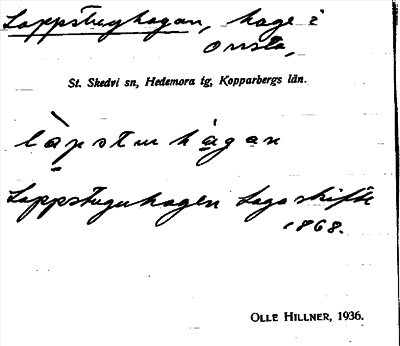 Lappstughagan, hage i
Onsta,
St. Skedvi sn, Hedemora tg, Kopparbergs län.
làpstu hágan
Lappstuguhagen Laga skifte
1868.
OLLE HILLNER, 1936.